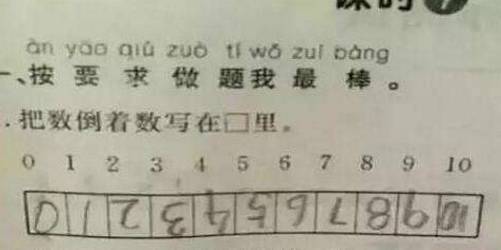 àn yāo qiú zuò tí wǒ zuì bàng
一、按要求做题我最棒。
.把数倒着数写在□里。
0 1 2 3 4 5 6 7 8 9 10
0 1 2 3 4 5 6 7 8 9 10